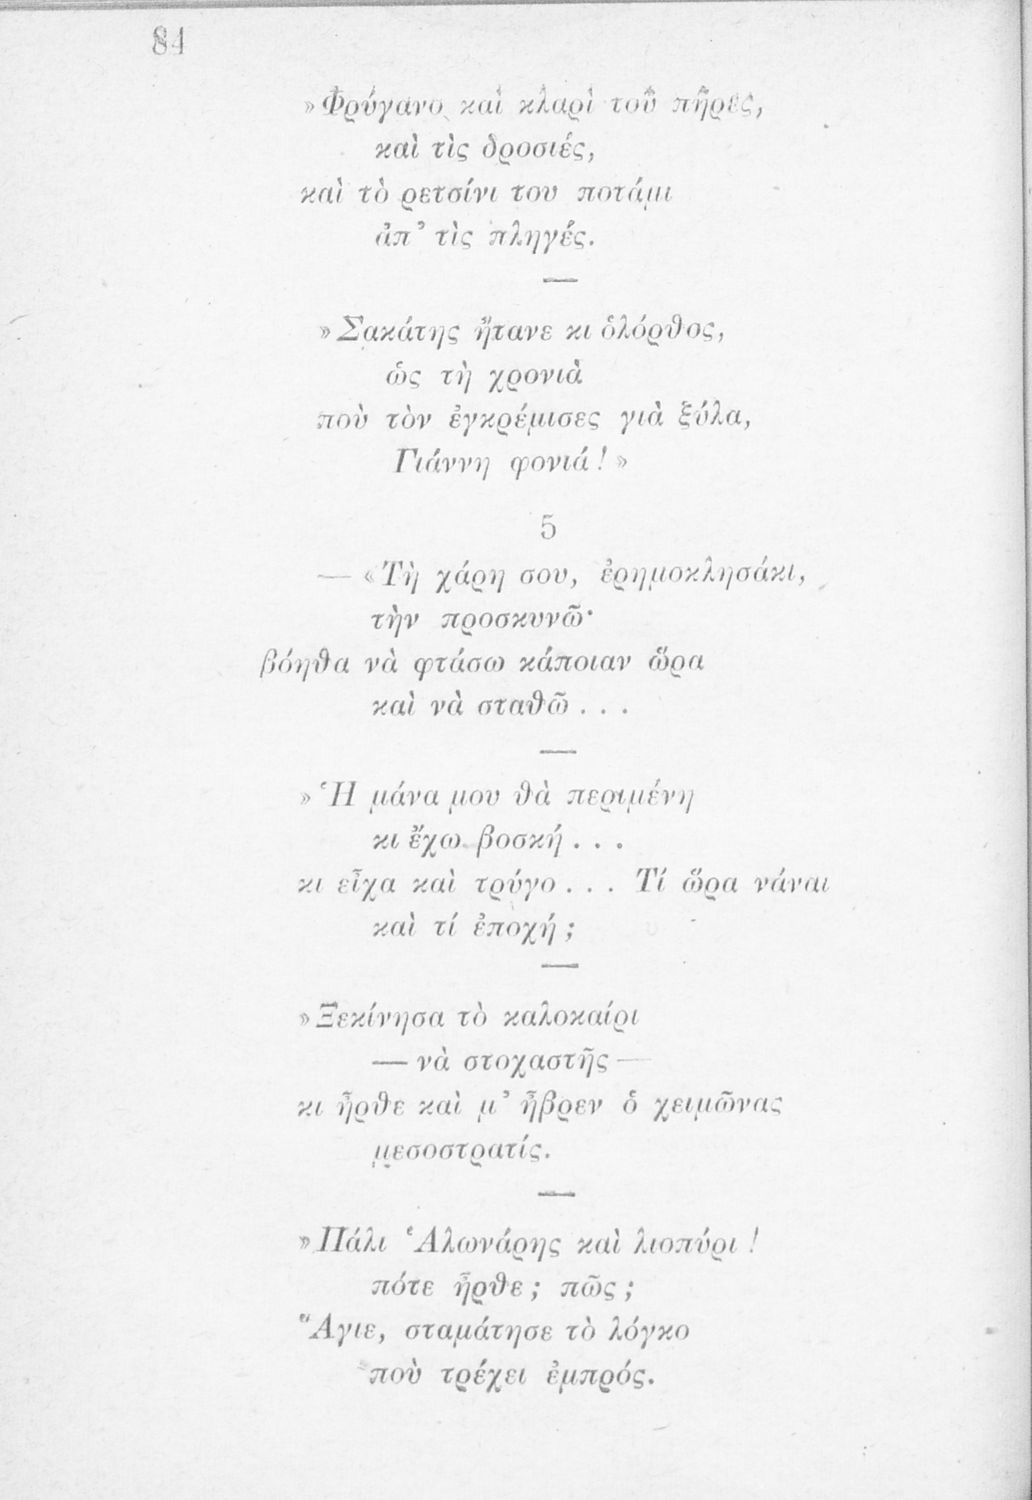 84
»Φρύγανο καὶ κλαρὶ τοῦ πῆρες,
καὶ τὶς δροσιές,
καὶ τὸ ρετσίνι του ποτάμι
ἀπ' τὶς πληγές.
—
»Σακάτης ἤτανε κι ὁλόρθος,
ὡς τὴ χρονιὰ
ποὺ τὸν ἐγκρέμισες γιὰ ξύλα,
Γιάννη φονιά!»
5
— «Τὴ χάρη σου, ἐρημοκλησάκι,
τὴν προσκυνῶ·
βόηθα νὰ φτάσω κάποιαν ὥρα
καὶ νὰ σταθῶ . . .
—
»Ἡ μάνα μου θὰ περιμένη
κι ἔχω βοσκή . . .
κι εἶχα καὶ τρύγο . . . Τί ὥρα νάναι
καὶ τί ἐποχή;
—
»Ξεκίνησα τὸ καλοκαίρι
— νὰ στοχαστῆς —
κι ἦρθε καὶ μ' ἦβρεν ὁ χειμῶνας
μεσοστρατίς.
—
»Πάλι Ἁλωνάρης καὶ λιοπύρι!
πότε ἦρθε; πῶς;
Ἅγιε, σταμάτησε τὸ λόγκο
ποὺ τρέχει ἐμπρός.